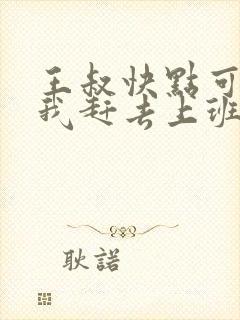 王叔快點可
我赶去上班
耿諾